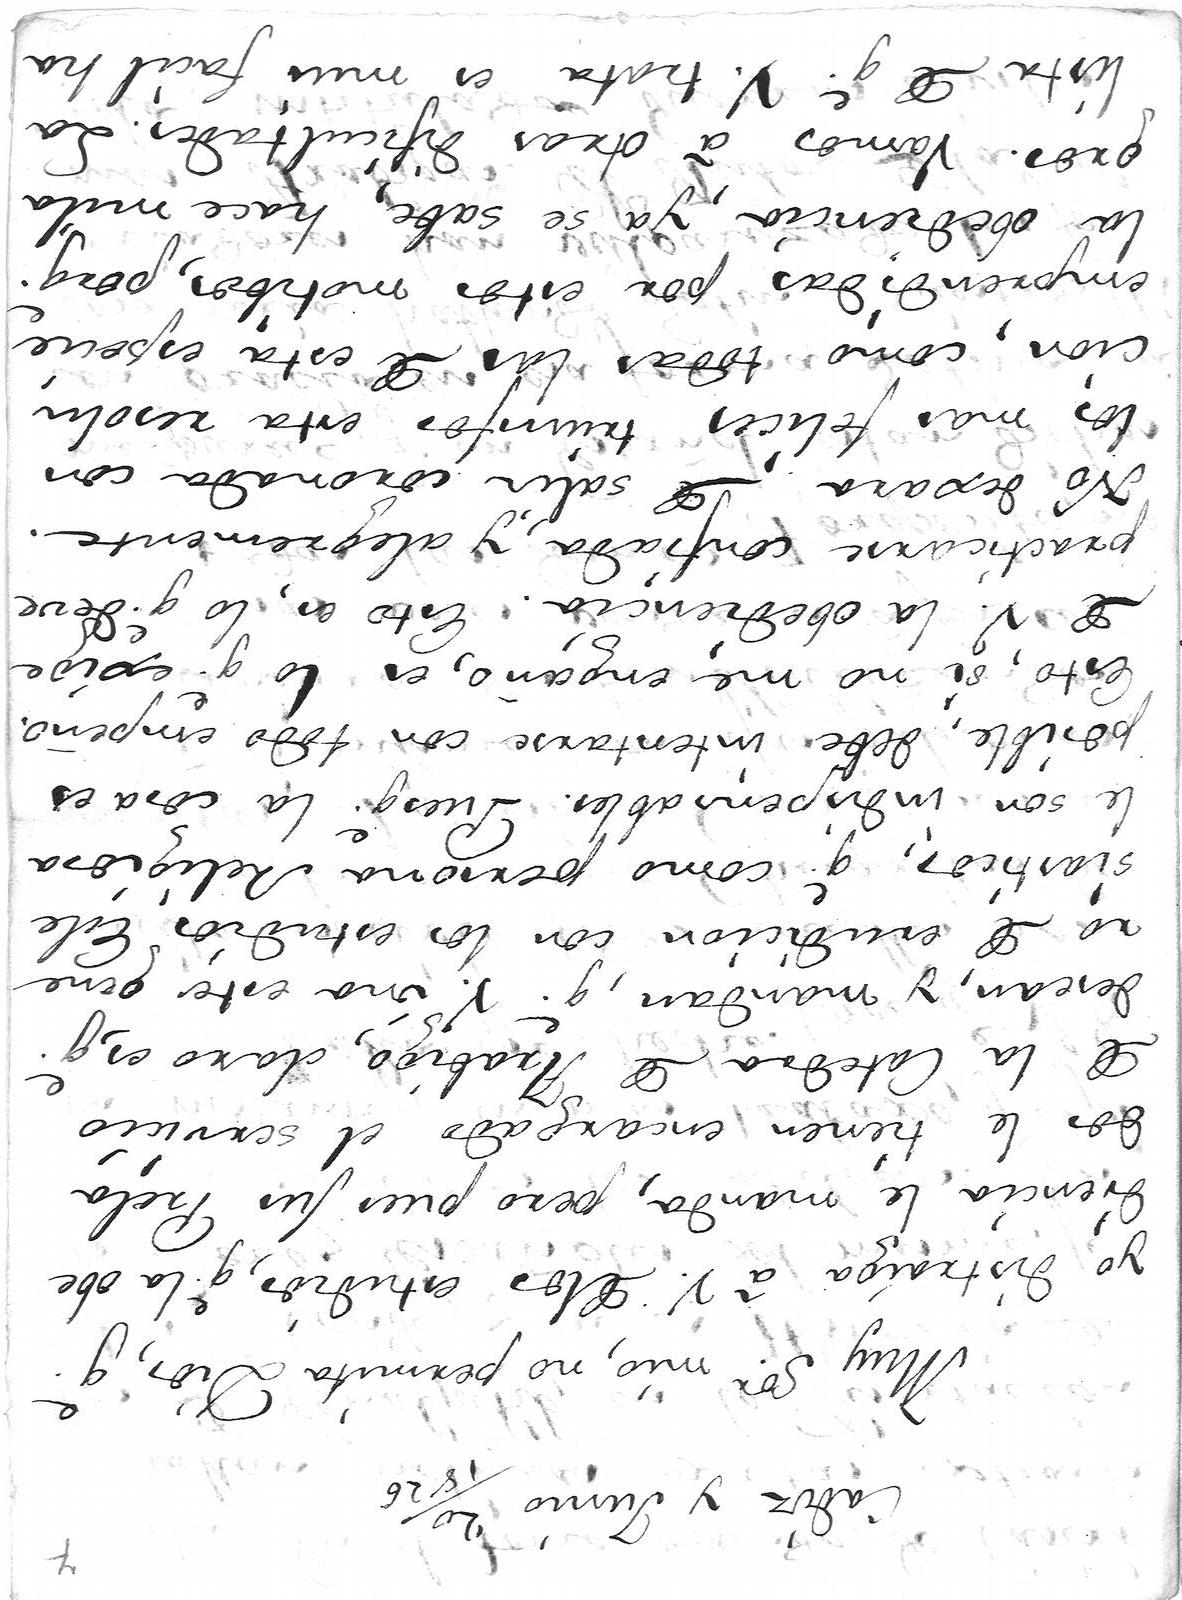 7
Cadiz y Junio 20/1826
Muy Sor. mio, no permita Dios, q.e
yo distraiga à V. de los estudios, q.e la obe
diencia le manda, pero pues sus Prela
dos le tienen encargado el servicio
de la Catedra de Arabigo, claro es, q.e
desean, y mandan, q.e V. una este gene
ro de erudicion con los estudios Ecle
siasticos, q.e como persona Religiosa
le son indispensables. Puesq.e la cosa es
posible, debe intentarse con todo empeño.
Esto, si no me engaño, es lo q.e exige
de V. la obediencia. Esto es, lo q.e deve
practicarse confiada, y alegremente.
No dexara de salir coronada con
los mas felices triunfos esta resolu
cion, como todas las de esta especie
emprendidas por estos motibos, porq.e
la obediencia, ya se sabe, hace mila
gros. Vamos à otras dificultades. La
lista de q.e V. trata es mui facil ha